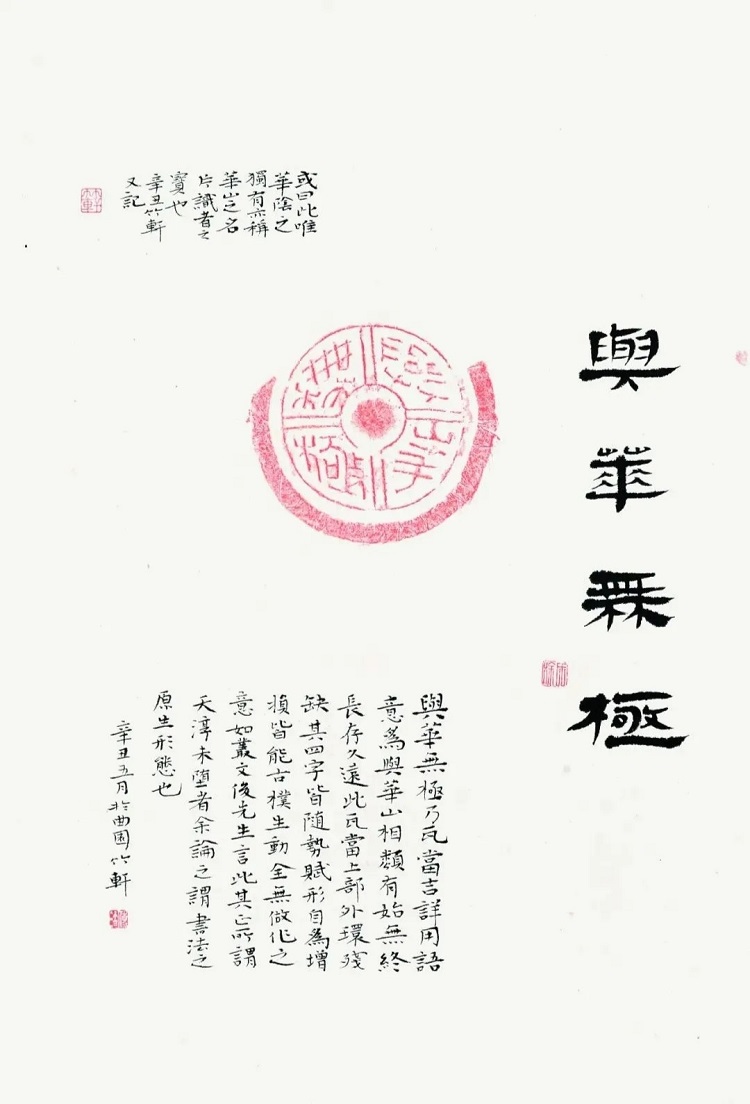 與華無極
與華
無極
或曰此唯
華陰之
獨有亦稱
華山之名
片識者之
寶也
辛丑竹軒
又記
與華無極乃瓦當吉詳用語
意為與華山相類有始無終
長存久遠此瓦當上部外環殘
缺其四字皆隨勢賦形自為增
損皆能古樸生動全無做作之
意如叢文俊先生言此其正所謂
天淳未墮者余論之謂書法之
原生形態也
辛丑五月於曲園竹軒